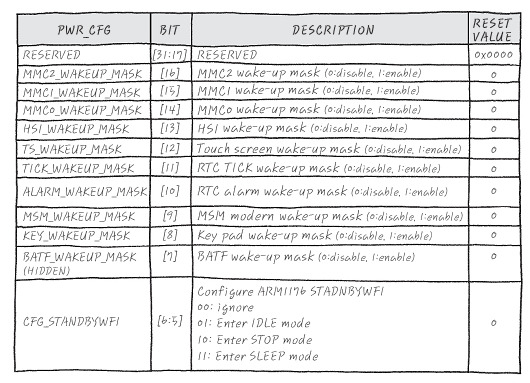 PWR_CFG BIT DESCRIPTION RESET VALUE
RESERVED [31:17] RESERVED 0x0000
MMC2_WAKEUP_MASK [16] MMC2 wake-up mask (0:disable, 1:enable) 0
MMC1_WAKEUP_MASK [15] MMC1 wake-up mask (0:disable, 1:enable) 0
MMC0_WAKEUP_MASK [14] MMC0 wake-up mask (0:disable, 1:enable) 0
HSI_WAKEUP_MASK [13] HSI wake-up mask (0:disable, 1:enable) 0
TS_WAKEUP_MASK [12] Touch screen wake-up mask (0:disable, 1:enable) 0
TICK_WAKEUP_MASK [11] RTC TICK wake-up mask (0:disable, 1:enable) 0
ALARM_WAKEUP_MASK [10] RTC alarm wake-up mask (0:disable, 1:enable) 0
MSM_WAKEUP_MASK [9] MSM modern wake-up mask (0:disable, 1:enable) 0
KEY_WAKEUP_MASK [8] Key pad wake-up mask (0:disable, 1:enable) 0
BATF_WAKEUP_MASK [7] BATF wake-up mask (0:disable, 1:enable) 0
(HIDDEN)
CFG_STANDBYWFI [6:5] Configure ARM1176 STADNBYWFI 0
00: ignore
01: Enter IDLE mode
10: Enter STOP mode
11: Enter SLEEP mode